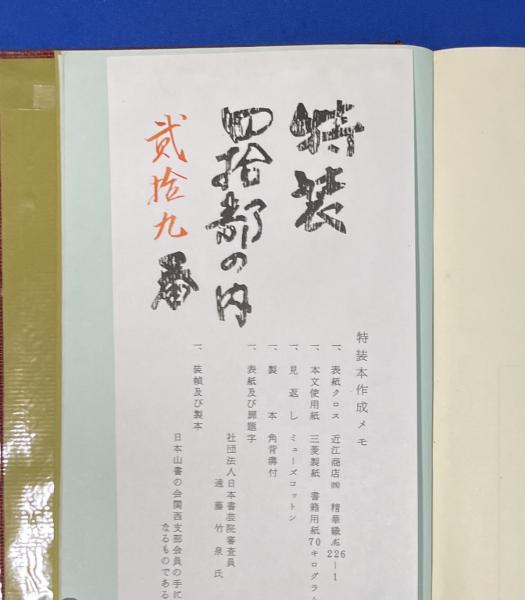 特装
四拾部の内
貳拾九番
特装本作成メモ
一、表紙クロス 近江商店㈱ 精華織№226−1
一、本文使用紙 三菱製紙 書籍用紙70キログラム
一、見返し ミューズコットン
一、製本 角背溝付
一、表紙及び扉題字
社団法人日本書芸院審査員
遠藤竹泉氏
一、装幀及び製本
日本山書の会関西支部会員の手に
なるものである